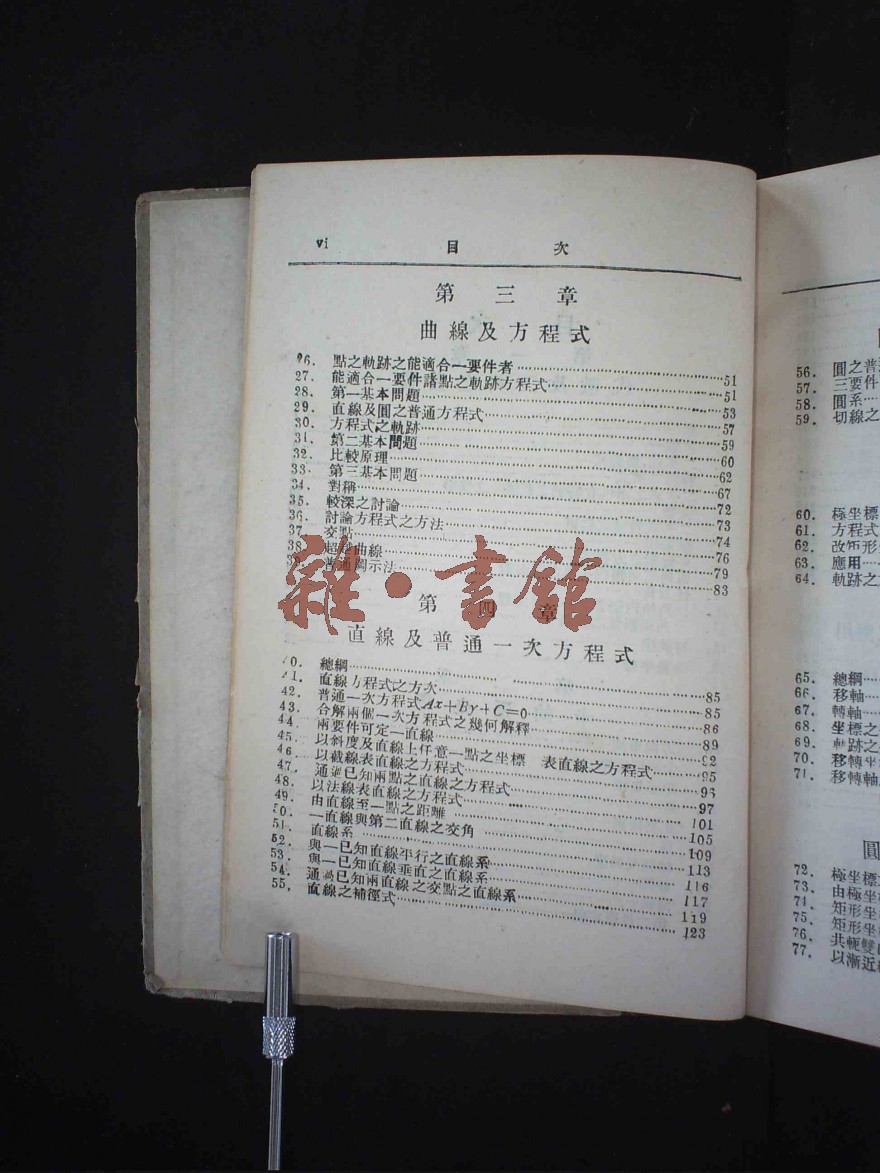 vi 目 次
第 三 章
曲線及方程式
26. 點之軌跡之能適合一要件者 51
27. 能適合一要件諸點之軌跡方程式 51
28. 第一基本問題 53
29. 直線及圓之普通方程式 57
30. 方程式之軌跡 59
31. 第二基本問題 60
32. 比較原理 62
33. 第三基本問題 67
34. 對稱 72
35. 較深之討論 73
36. 討論方程式之方法 74
37. 交點 76
38. 曲線 79
示法 83
雜·書館
第 四 章
直線及普通一次方程式
40. 總綱 85
41. 直線方程式之方次 85
42. 普通一次方程式Ax+By+C=0 86
43. 合解兩個一次方程式之幾何解釋 89
44. 兩要件可定一直線 92
45. 以斜度及直線上任意一點之坐標 表直線之方程式 95
46. 以截線表直線之方程式 96
47. 通過已知兩點之直線之方程式 97
48. 以法線表直線之方程式 101
49. 由直線至一點之距離 105
50. 一直線與第二直線之交角 109
51. 直線系 113
52. 與一已知直線平行之直線系 116
53. 與一已知直線垂直之直線系 117
54. 通過已知兩直線之交點之直線系 119
55. 直線之補徑式 123
56. 圓之普
57. 三要件
58. 圓系
59. 切線之
60. 極坐標
61. 方程式
62. 改矩形
63. 應用
64. 軌跡之
65. 總綱
66. 移軸
67. 轉軸
68. 坐標之
69. 軌跡之
70. 移轉坐
71. 移轉軸
圓
72. 極坐標
73. 由極坐
74. 矩形坐
75. 矩形坐
76. 共軛雙
77. 以漸近